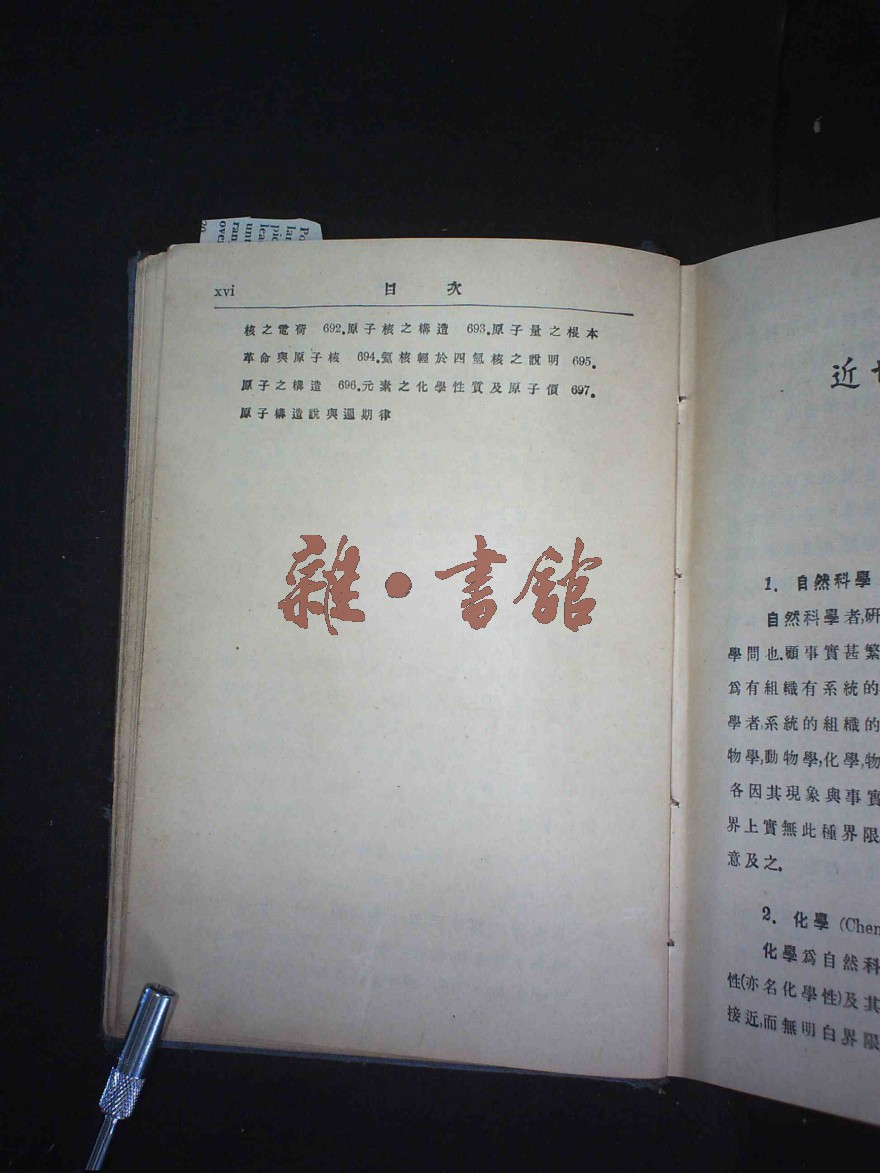 xvi 目 次
核之電荷 692.原子核之構造 693.原子量之根本
革命與原子核 694.氦核輕於四氫核之說明 695.
原子之構造 696.元素之化學性質及原子價 697.
原子構造說與週期律
雜·書館
近
1. 自然科學
自然科學者,研
學問也.顧事實甚繁
爲有組織有系統的
學者,系統的組織的
物學,動物學,化學,物
各因其現象與事實
界上實無此種界限
意及之.
2. 化學 (Chem
化學爲自然科
性(亦名化學性)及其
接近,而無明白界限